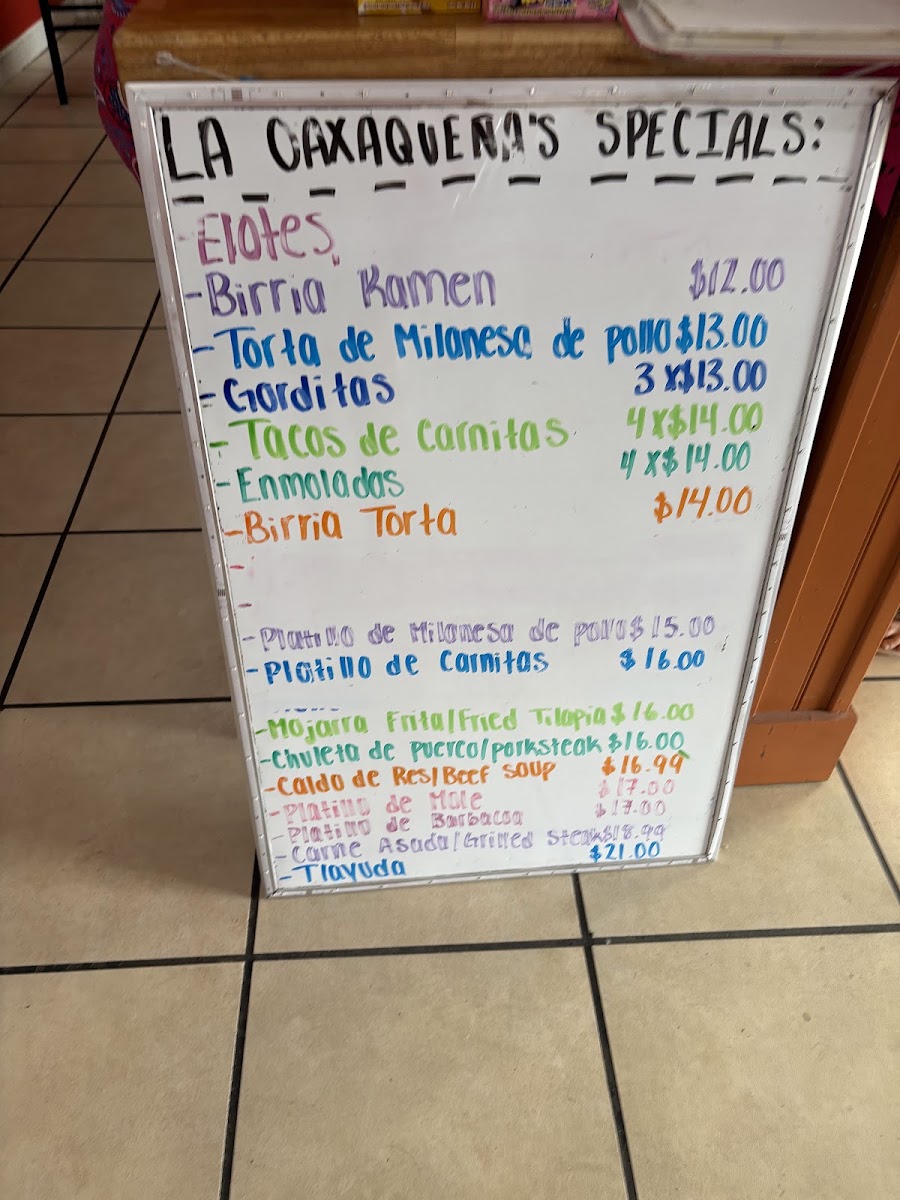 LA OAXAQUEÑA'S SPECIALS:
- Elotes
- Birria Ramen $12.00
- Torta de Milanesa de pollo $13.00
- Gorditas 3 x $13.00
- Tacos de Carnitas 4 x $14.00
- Enmoladas 4 x $14.00
- Birria Torta $14.00
-
-
- Platillo de Milanesa de pollo $15.00
- Platillo de Carnitas $16.00
- Mojarra Frita/Fried Tilapia $16.00
- Chuleta de puerco/porksteak $16.00
- Caldo de Res/Beef soup $16.99
- Platillo de Mole $17.00
- Platillo de Barbacoa $17.00
- Carne Asada/Grilled steak $18.99
- Tlayuda $21.00